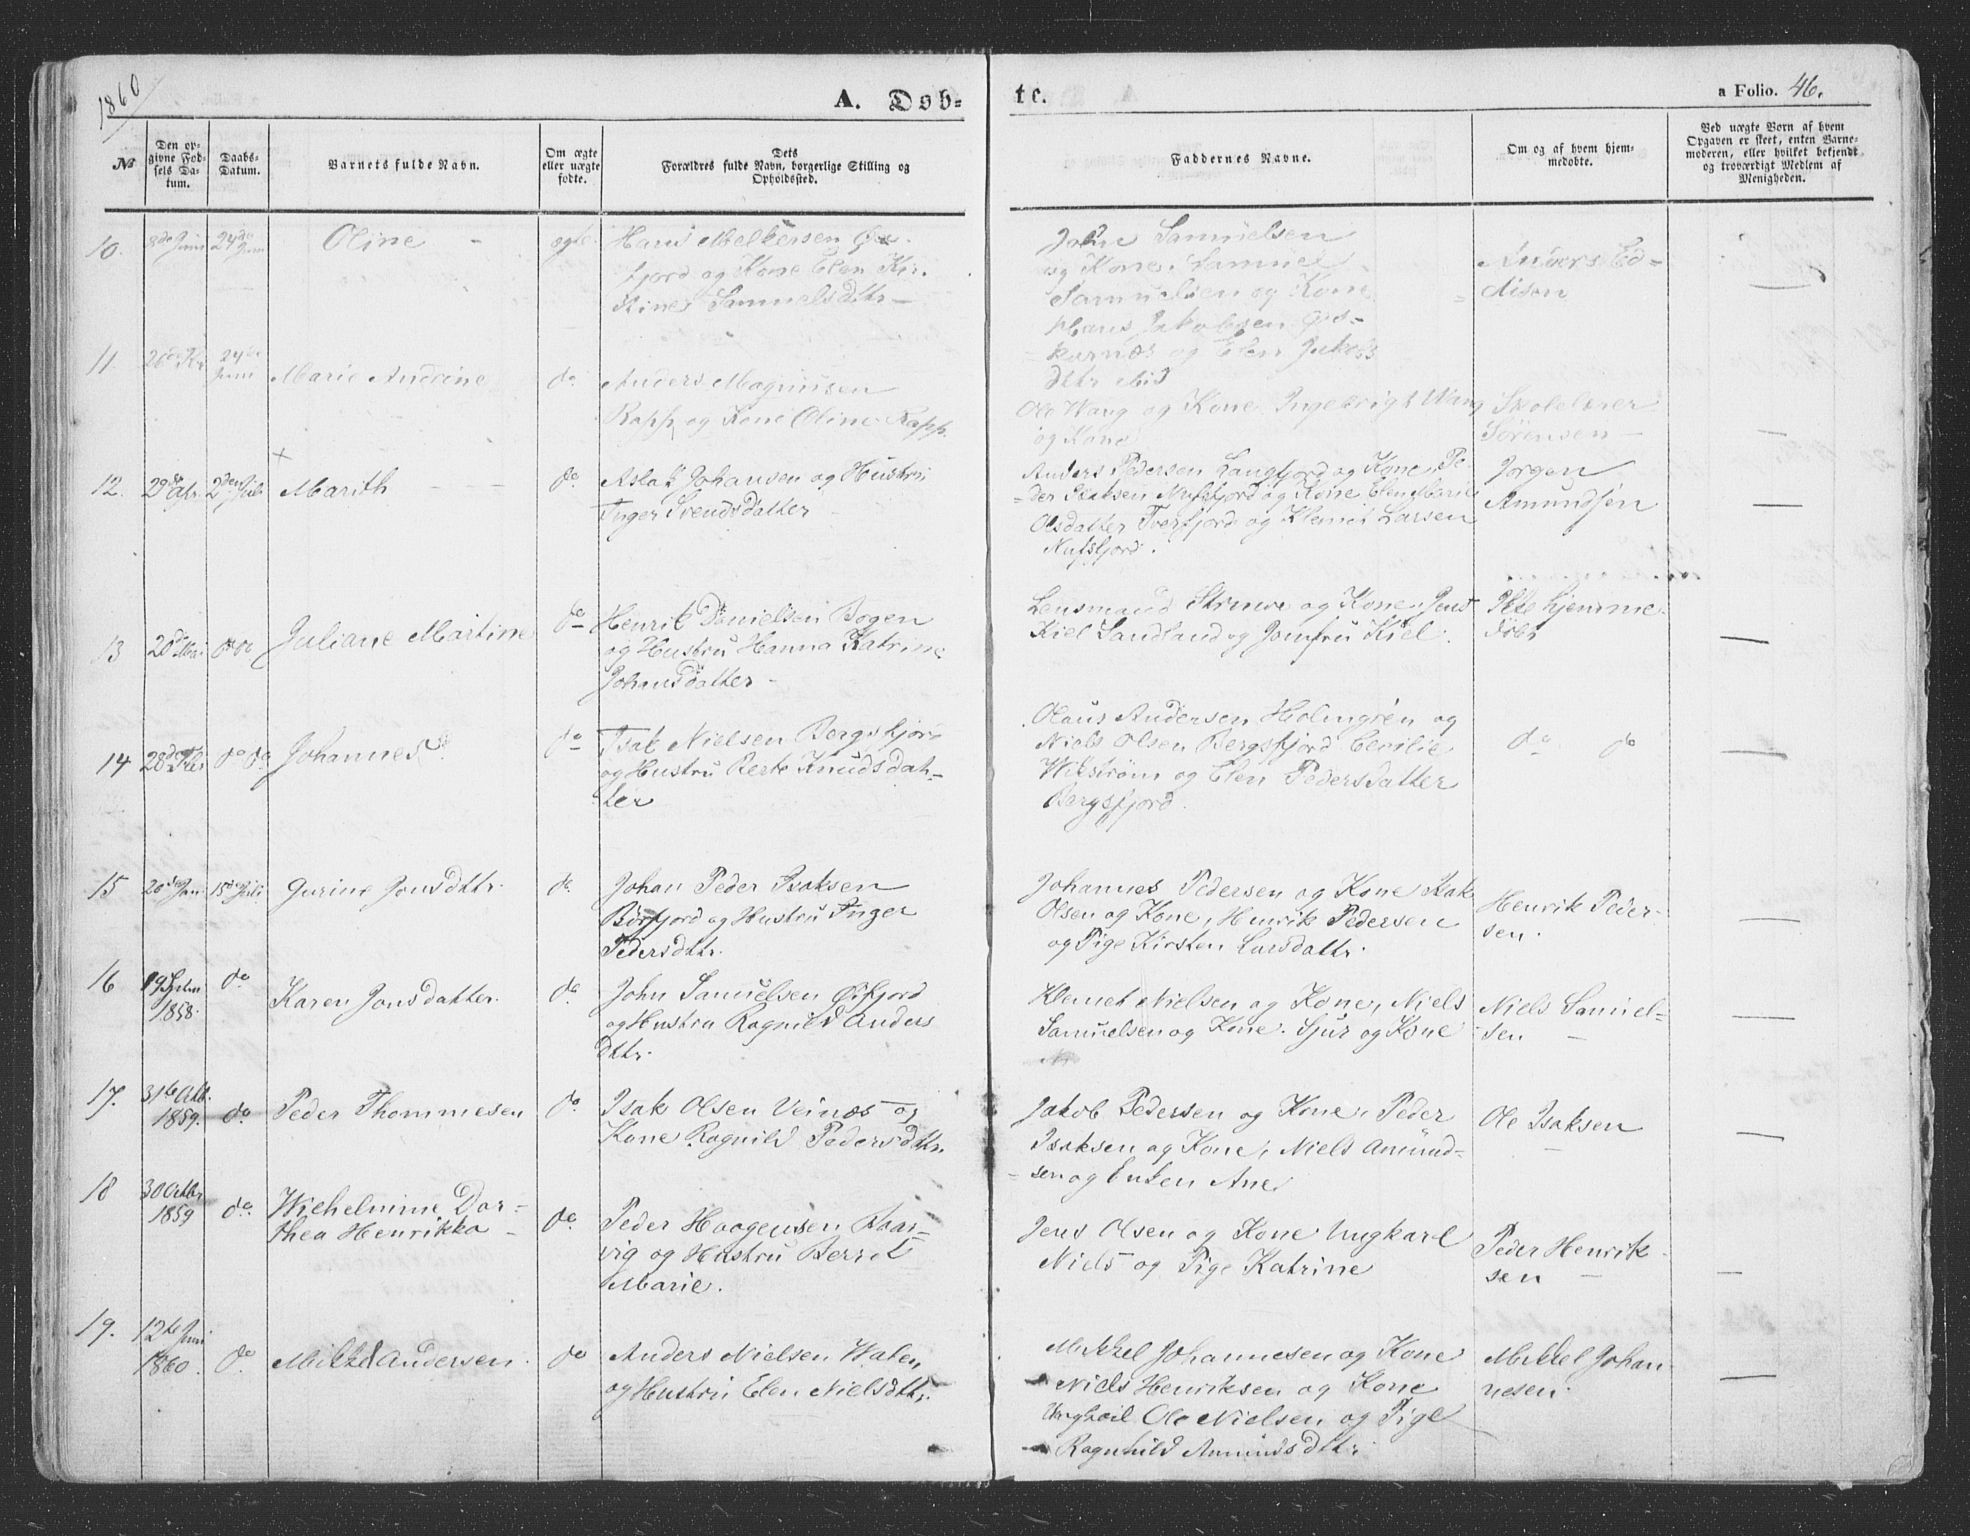 1860
A. Döb-
te.
a Folio. 46.
№
Den op-
givne Fød-
sels Da-
tum.
Daabs-
Datum.
Barnets fulde Navn.
Om ægte
eller uægte
fødte.
Dets
Forældres fulde Navn, borgerlige Stilling og
Opholdssted.
Faddernes Navne.
Om og af hvem hjem-
medøbte.
Ved uægte Børn af hvem
Opgaven er skeet, enten Barne-
moderen, eller hvilket bekjendt
og troværdigt Medlem af
Menigheden.
10.
8de Juni
24de
Juni
Oline
ægte
Hans Melkersen Øx-
fjord og Kone Elen Kir-
stine Samuelsdttr
John Samuelsen
og Kone, Samuel
Samuelsen og Kone
Hans Jakobsen
og Elen Jakobs
dttr
Anders
11.
24de
Juni
Marie Andrine
do
Anders Magnusen
Rapp og Kone Oline Rapp.
Ole Wang og Kone Ingebrigt Wang
og Kone
Skolelærer
Sørensen
12.
29de
2den Juli
Marith
do
Aslak Johansen og Hustru
Inger Svendsdatter
Anders Pedersen Langfjord og Kone, Pe-
der Isaksen Nufsfjord og Kone Elen Marie
Olsdatter Tverfjord og Klemet Larsen
Nufsfjord.
Jørgen
Amundsen
13
20de Mai
do do
Juliane Martine
do
Henrik Danielsen Bogen
og Hustru Hanna Katrine
Johansdatter
Lensmand Struwe og Kone, Jens
Kiel Sandland og Jomfru Kiel.
Ikke hjemme-
døbt
14
do do
Johannes
do
Isak Nielsen Bergsfjord
og Hustru Berte Knudsdat-
ter
Olaus Andersen Holmgren og
Niels Olsen Bergsfjord Cecilie
Wikstrøm og Elen Pedersdatter
Bergsfjord.
do do
15
20de Jan
15de Juli
Gurine Jonsdttr.
do
Johan Peder Isaksen
Børfjord og Hustru Inger
Pedersdttr.
Johannes Pedersen og Kone Isak
Olsen og Kone, Henrik Pedersen
og Pige Kirsten Larsdattr.
Henrik Peder-
sen.
16
1858.
do
Karen Jonsdatter.
do
John Samuelsen Øxfjord
og Hustru Ragnild Anders
dttr.
Klemet Nielsen og Kone, Niels
Samuelsen og Kone. Sjur og Kone
Niels Samuel-
sen
17.
31te Okt.
1859.
do
Peder Thommesen
do
Isak Olsen Veinæs og
Kone Ragnild Pedersdttr.
Jakob Pedersen og Kone, Peder
Isaksen og Kone, Niels Amund-
sen og Enken Ane
Ole Isaksen
18
30 Octbr
1859
do
Wilhelmine Dor-
thea Henrikka
do
Peder Haagensen Baar-
vig og Hustru Berret
Marie.
Jens Olsen og Kone Ungkarl
Niels og Pige Katrine
Peder Henrik-
sen
19.
12te Juni
1860.
do
Mikkel Andersen
do
Anders Nielsen Walen
og Hustru Elen Nielsdttr.
Mikkel Johannesen og Kone
Niels Henriksen og Kone
Ungkarl Ole Nielsen og Pige
Ragnhild Amundsdttr.
Mikkel Johan
nesen.